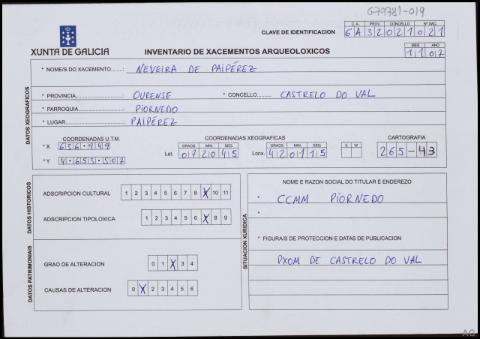 G70781-019
C.A. PROV. CONCELLO Nº INV.
CLAVE DE IDENTIFICACION GA32021021
MES ANO
1107
XUNTA DE GALICIA
INVENTARIO DE XACEMENTOS ARQUEOLOXICOS
DATOS XEOGRAFICOS
* NOME/S DO XACEMENTO......: NEVEIRA DE PAIPÉREZ
* PROVINCIA: OURENSE * CONCELLO: CASTRELO DO VAL
* PARROQUIA: PIORNEDO
* LUGAR: PAIPÉREZ
COORDENADAS U.T.M. COORDENADAS XEOGRAFICAS CARTOGRAFIA
GRAOS MIN. SEG. GRAOS MIN. SEG. E W
* X 636.949 Lat. 072045 Lonx. 420115 265-43
* Y 4.653.507
DATOS HISTORICOS
ADSCRIPCION CULTURAL 1 2 3 4 5 6 7 8 X 10 11
ADSCRIPCION TIPOLOXICA 1 2 3 4 5 6 X 8 9
DATOS PATRIMONIAIS
GRAO DE ALTERACION 0 1 X 3 4
CAUSAS DE ALTERACION 0 X 2 3 4 5 6
SITUACION XURIDICA
NOME E RAZON SOCIAL DO TITULAR E ENDEREZO
CCMM PIORNEDO
* FIGURAS DE PROTECCION E DATAS DE PUBLICACION
PXOM DE CASTRELO DO VAL